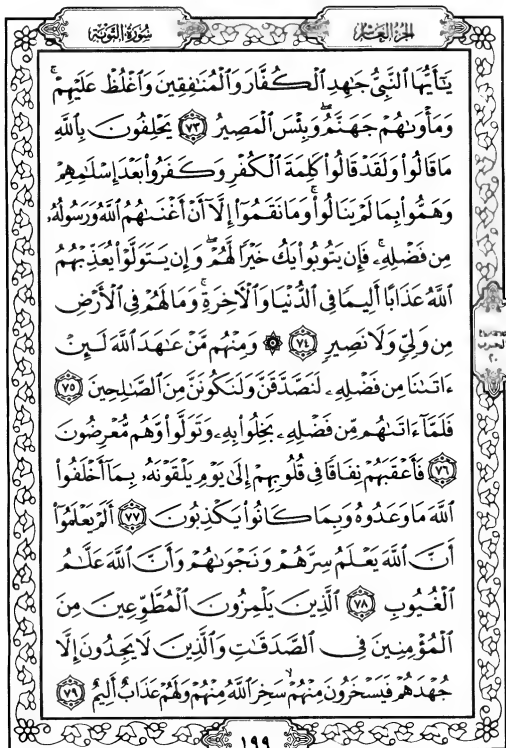 سُورَةُ التَّوْبَةِ
الجُزْءُ العَاشِرُ
يَٰٓأَيُّهَا ٱلنَّبِيُّ جَٰهِدِ ٱلْكُفَّارَ وَٱلْمُنَٰفِقِينَ وَٱغْلُظْ عَلَيْهِمْ ۚ
وَمَأْوَىٰهُمْ جَهَنَّمُ ۖ وَبِئْسَ ٱلْمَصِيرُ ٧٣ يَحْلِفُونَ بِٱللَّهِ
مَا قَالُوا۟ وَلَقَدْ قَالُوا۟ كَلِمَةَ ٱلْكُفْرِ وَكَفَرُوا۟ بَعْدَ إِسْلَٰمِهِمْ
وَهَمُّوا۟ بِمَا لَمْ يَنَالُوا۟ ۚ وَمَا نَقَمُوٓا۟ إِلَّآ أَنْ أَغْنَىٰهُمُ ٱللَّهُ وَرَسُولُهُۥ
مِن فَضْلِهِۦ ۚ فَإِن يَتُوبُوا۟ يَكُ خَيْرًا لَّهُمْ ۖ وَإِن يَتَوَلَّوْا۟ يُعَذِّبْهُمُ
ٱللَّهُ عَذَابًا أَلِيمًا فِى ٱلدُّنْيَا وَٱلْءَاخِرَةِ ۚ وَمَا لَهُمْ فِى ٱلْأَرْضِ
مِن وَلِىٍّ وَلَا نَصِيرٍ ٧٤ ۞ وَمِنْهُم مَّنْ عَٰهَدَ ٱللَّهَ لَئِنْ
ءَاتَىٰنَا مِن فَضْلِهِۦ لَنَصَّدَّقَنَّ وَلَنَكُونَنَّ مِنَ ٱلصَّٰلِحِينَ ٧٥
فَلَمَّآ ءَاتَىٰهُم مِّن فَضْلِهِۦ بَخِلُوا۟ بِهِۦ وَتَوَلَّوا۟ وَّهُم مُّعْرِضُونَ
٧٦ فَأَعْقَبَهُمْ نِفَاقًا فِى قُلُوبِهِمْ إِلَىٰ يَوْمِ يَلْقَوْنَهُۥ بِمَآ أَخْلَفُوا۟
ٱللَّهَ مَا وَعَدُوهُ وَبِمَا كَانُوا۟ يَكْذِبُونَ ٧٧ أَلَمْ يَعْلَمُوٓا۟
أَنَّ ٱللَّهَ يَعْلَمُ سِرَّهُمْ وَنَجْوَىٰهُمْ وَأَنَّ ٱللَّهَ عَلَّٰمُ
ٱلْغُيُوبِ ٧٨ ٱلَّذِينَ يَلْمِزُونَ ٱلْمُطَّوِّعِينَ مِنَ
ٱلْمُؤْمِنِينَ فِى ٱلصَّدَقَٰتِ وَٱلَّذِينَ لَا يَجِدُونَ إِلَّا
جُهْدَهُمْ فَيَسْخَرُونَ مِنْهُمْ ۙ سَخِرَ ٱللَّهُ مِنْهُمْ وَلَهُمْ عَذَابٌ أَلِيمٌ ٧٩
الحزب
٢٠
١٩٩